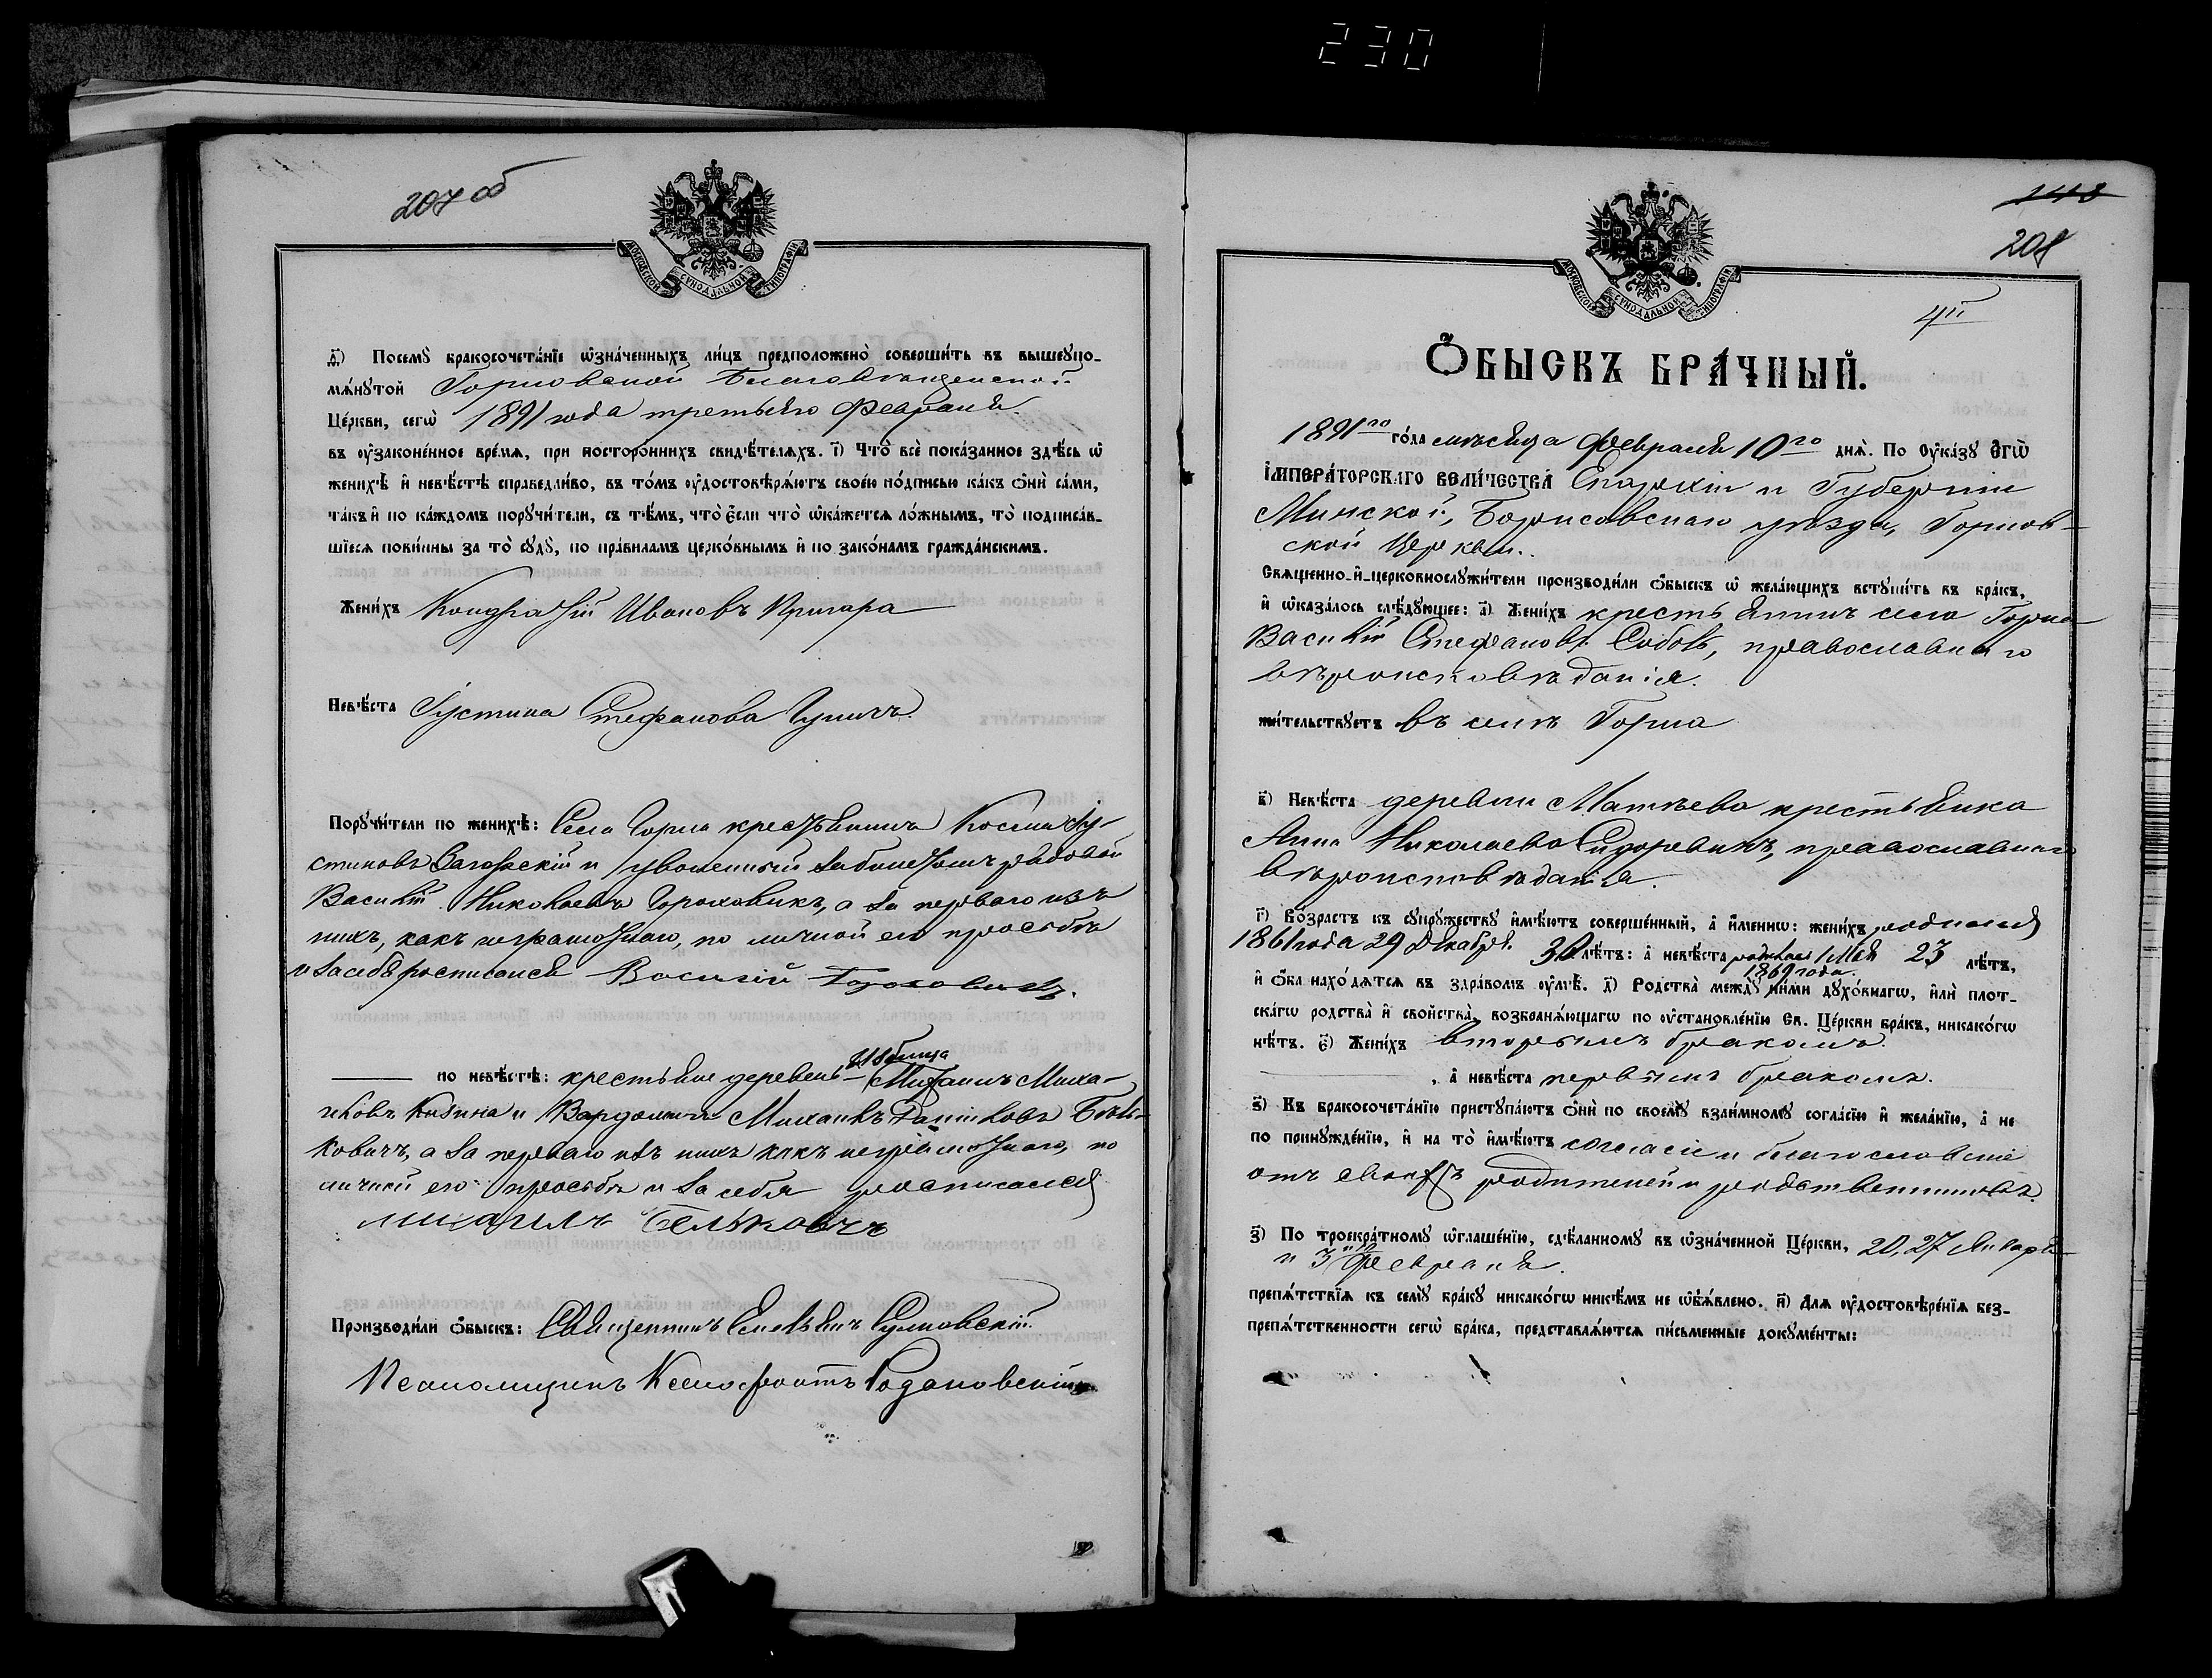 230
207 об
МОСКОВСКОЙ СѴНОДАЛЬНОЙ ТИПОГРАФІИ
д҃і) Посемꙋ бракосочета́нїе ѡ҆зна́ченныхъ ли́цъ предположено̀ соверши́ть въ вышеꙋпо-
мѧ́нꙋтой Горновской Благовѣщенской
Це́ркви, сегѡ̀ 1891 года третьяго Февраля
въ ᲂу҆законе́нное вре́мѧ, при посторо́ннихъ свидѣ́телѧхъ. і҃) Что̀ всѐ пока́занное здѣ́сь ѡ҆
женихѣ̀ и҆ невѣ́стѣ справедли́во, въ то́мъ ᲂу҆достовѣрѧ́ютъ свое́ю по́дписью ка́къ ѻ҆нѝ са́ми,
та́къ и҆ по ка́ждомъ порꙋчи́тели, съ тѣ́мъ, что̀ є҆́сли что̀ ѡ҆ка́жетсѧ ло́жнымъ, то̀ подписа́в-
шїесѧ пови́нны за то̀ сꙋдꙋ̀, по пра́виламъ церко́внымъ и҆ по зако́намъ гражда́нскимъ.
Жени́хъ Кондратій Ивановъ Пригара
Невѣ́ста Іустина Стефанова
Порꙋчи́тели по женихѣ̀: Села Горна крестьянинъ Косма Іу-
стиновъ и уволенный рядовой
Василій Николаевъ Гороховикъ, а за перваго изъ
нихъ, какъ неграмотнаго, по личной его просьбѣ
и за себя росписался Василій Гороховикъ.
по невѣ́стѣ: крестьяне деревень Миха-
иловъ и Михаилъ Бѣль-
ковичъ, а за перваго изъ нихъ какъ неграмотнаго, по
личной его просьбѣ и за себя росписался
михаилъ бельковичъ
Производи́ли ѻ҆́быскъ: Священникъ
Псаломщикъ Ксенофонтъ
208
МОСКОВСКОЙ СѴНОДАЛЬНОЙ ТИПОГРАФІИ
Ѻ҆́БЫСКЪ БРА́ЧНЫЙ.
1891го го́да мѣсяца Февраля 10го днѧ̀. По ᲂу҆ка́зꙋ Є҆Гѡ̀
І҆МПЕРА́ТОРСКАГО ВЕЛИ́ЧЕСТВА Епархіи и Губерніи
Минской, Борисовскаго уѣзда, Горнов-
ской Церкви.
Свѧще́нно-и҆-церковнослꙋжи́тели производи́ли ѻ҆́быскъ ѡ҆ жела́ющихъ встꙋпи́ть въ бра́къ,
и҆ ѡ҆каза́лось слѣ́дꙋющее: а҃) Жени́хъ крестьянинъ села Горна
Василій Стефановъ Соболь, православнаго
вѣроисповѣданія.
жи́тельствꙋетъ въ селѣ Горна
в҃) Невѣ́ста деревни Матвѣево крестьянка
Анна Николаева Сидоревичъ, православнаго
вѣроисповѣданія.
г҃) Во́зрастъ къ сꙋпрꙋ́жествꙋ и҆мѣ́ютъ соверше́нный, а҆ и҆́менно: жени́хъ родился
1861 года 29 Декабря 30 лѣ́тъ: а҆ невѣ́ста родилась 1 Мая 23 лѣ́тъ,
1869 года.
и҆ ѻ҆́ба нахо́дѧтсѧ въ здра́вомъ ᲂу҆мѣ̀. д҃) Родства̀ междꙋ̀ ни́ми дꙋхо́внагѡ, и҆лѝ пло́т-
скагѡ родства̀ и҆ сво́йства, возбранѧ́ющагѡ по ᲂу҆становле́нїю Св. Це́ркви бра́къ, никако́гѡ
нѣ́тъ. є҃) Жени́хъ вторымъ бракомъ.
, а҆ невѣ́ста первымъ бракомъ.
ѕ҃) Къ бракосочета́нїю пристꙋпа́ютъ ѻ҆нѝ по своемꙋ̀ взаи́мномꙋ согла́сїю и҆ жела́нїю, а҆ не
по принꙋжде́нїю, и҆ на то̀ и҆мѣ́ютъ согласіе и благословеніе
отъ своихъ родителей и родственниковъ.
з҃) По троекра́тномꙋ ѡ҆глаше́нїю, сдѣ́ланномꙋ въ ѡ҆зна́ченной Це́ркви, 20, 27 Января
и 3 Февраля.
препѧ́тствїѧ къ семꙋ̀ бра́кꙋ никако́гѡ никѣ́мъ не ѡ҆б̾ѧ́влено. и҃) Длѧ ᲂу҆достовѣре́нїѧ без-
препѧ́тственности сегѡ̀ бра́ка, представлѧ́ютсѧ пи́сьменные докꙋме́нты: